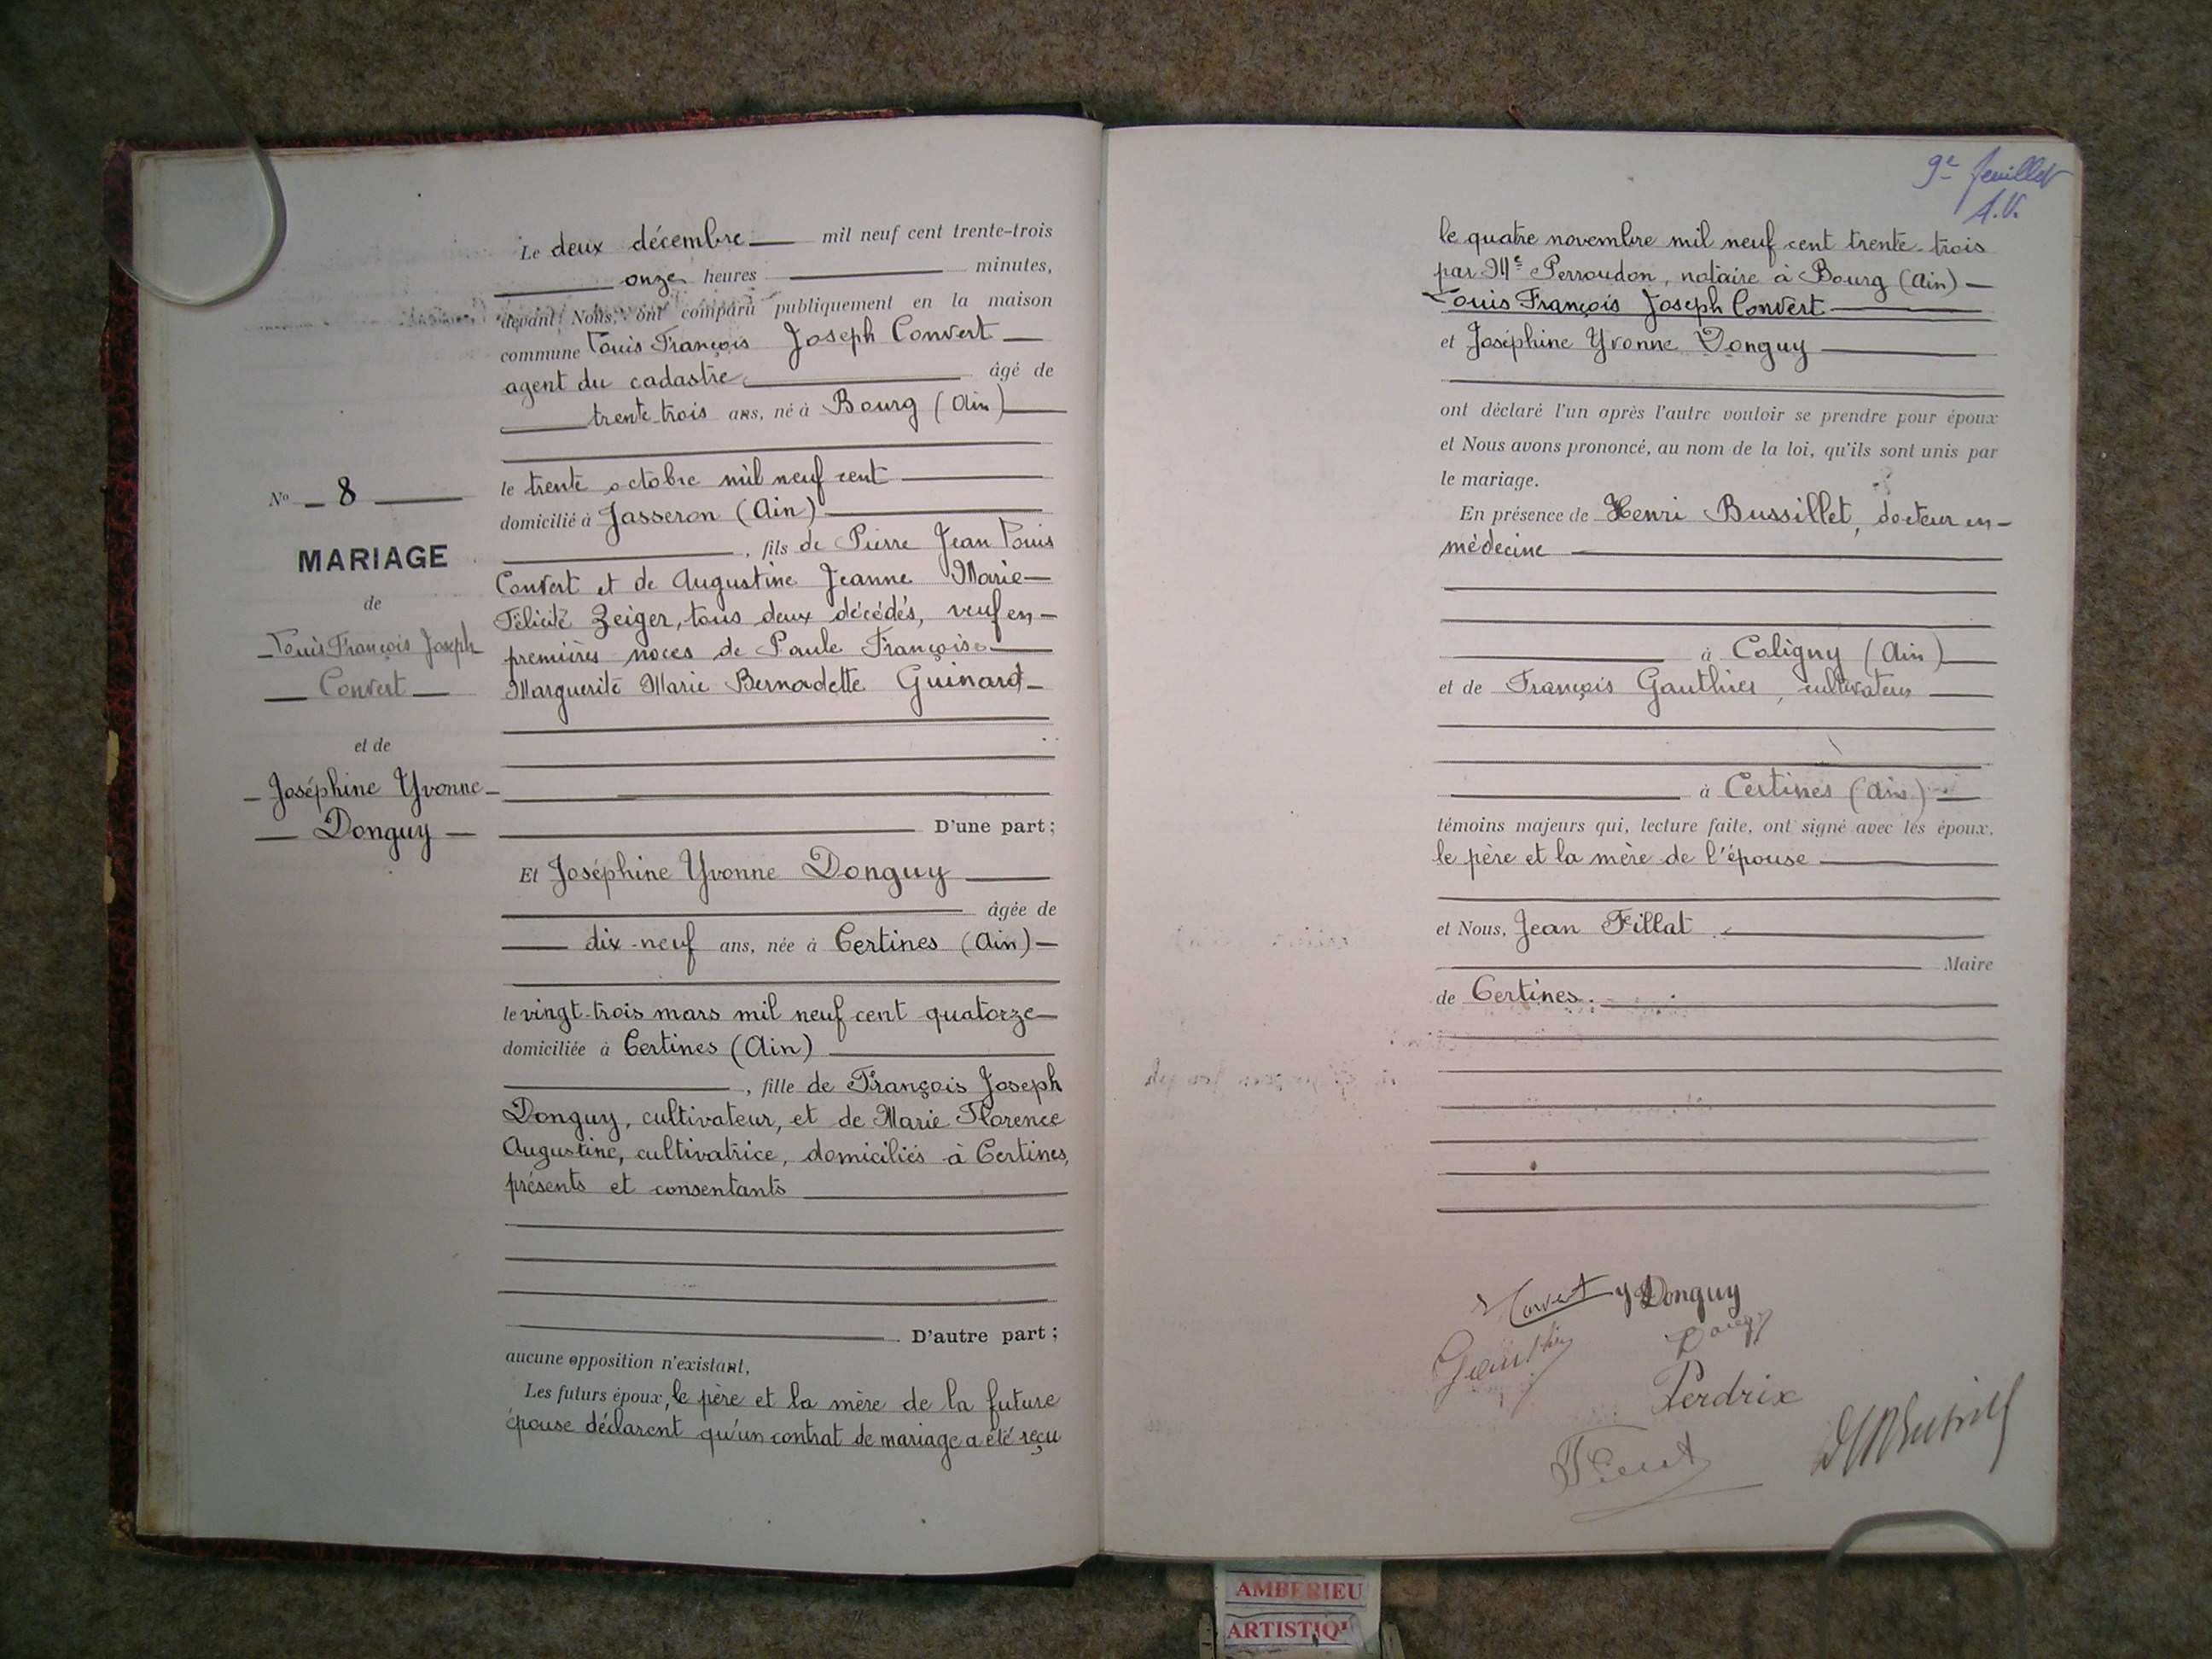 Le deux décembre mil neuf cent trente-trois
onze heures minutes,
devant Nous, ont comparu publiquement en la maison
commune Louis François Joseph Convert
agent du cadastre âgé de
trente-trois ans, né à Bourg (Ain)
le trente octobre mil neuf cent
domicilié à Jasseron (Ain)
, fils de Pierre Jean Louis
Convert et de Augustine Jeanne Marie
Félicité Zeiger, tous deux décédés, veuf en
premières noces de Paule Françoise
Marguerite Marie Bernadette Guinard
D'une part;
Et Joséphine Yvonne Donguy
âgée de
dix-neuf ans, née à Certines (Ain)
le vingt-trois mars mil neuf cent quatorze
domiciliée à Certines (Ain)
, fille de François Joseph
Donguy, cultivateur, et de Marie Florence
Augustine, cultivatrice, domiciliés à Certines,
présents et consentants
D'autre part;
aucune opposition n'existant,
Les futurs époux, le père et la mère de la future
épouse déclarent qu'un contrat de mariage a été reçu
No 8
MARIAGE
de
Louis François Joseph
Convert
et de
Joséphine Yvonne
Donguy
9e feuillet
le quatre novembre mil neuf cent trente-trois
par Me Perroudon, notaire à Bourg (Ain)
Louis François Joseph Convert
et Joséphine Yvonne Donguy
ont déclaré l'un après l'autre vouloir se prendre pour époux
et Nous avons prononcé, au nom de la loi, qu'ils sont unis par
le mariage.
En présence de Henri Bussillet, docteur en
médecine
à Coligny (Ain)
et de François Gauthier, cultivateur
à Certines (Ain)
témoins majeurs qui, lecture faite, ont signé avec les époux,
le père et la mère de l'épouse
et Nous, Jean Fillat
Maire
de Certines.
Convert y Donguy
Gauthier Donguy
Perdrix
AMBERIEU
ARTISTIQ